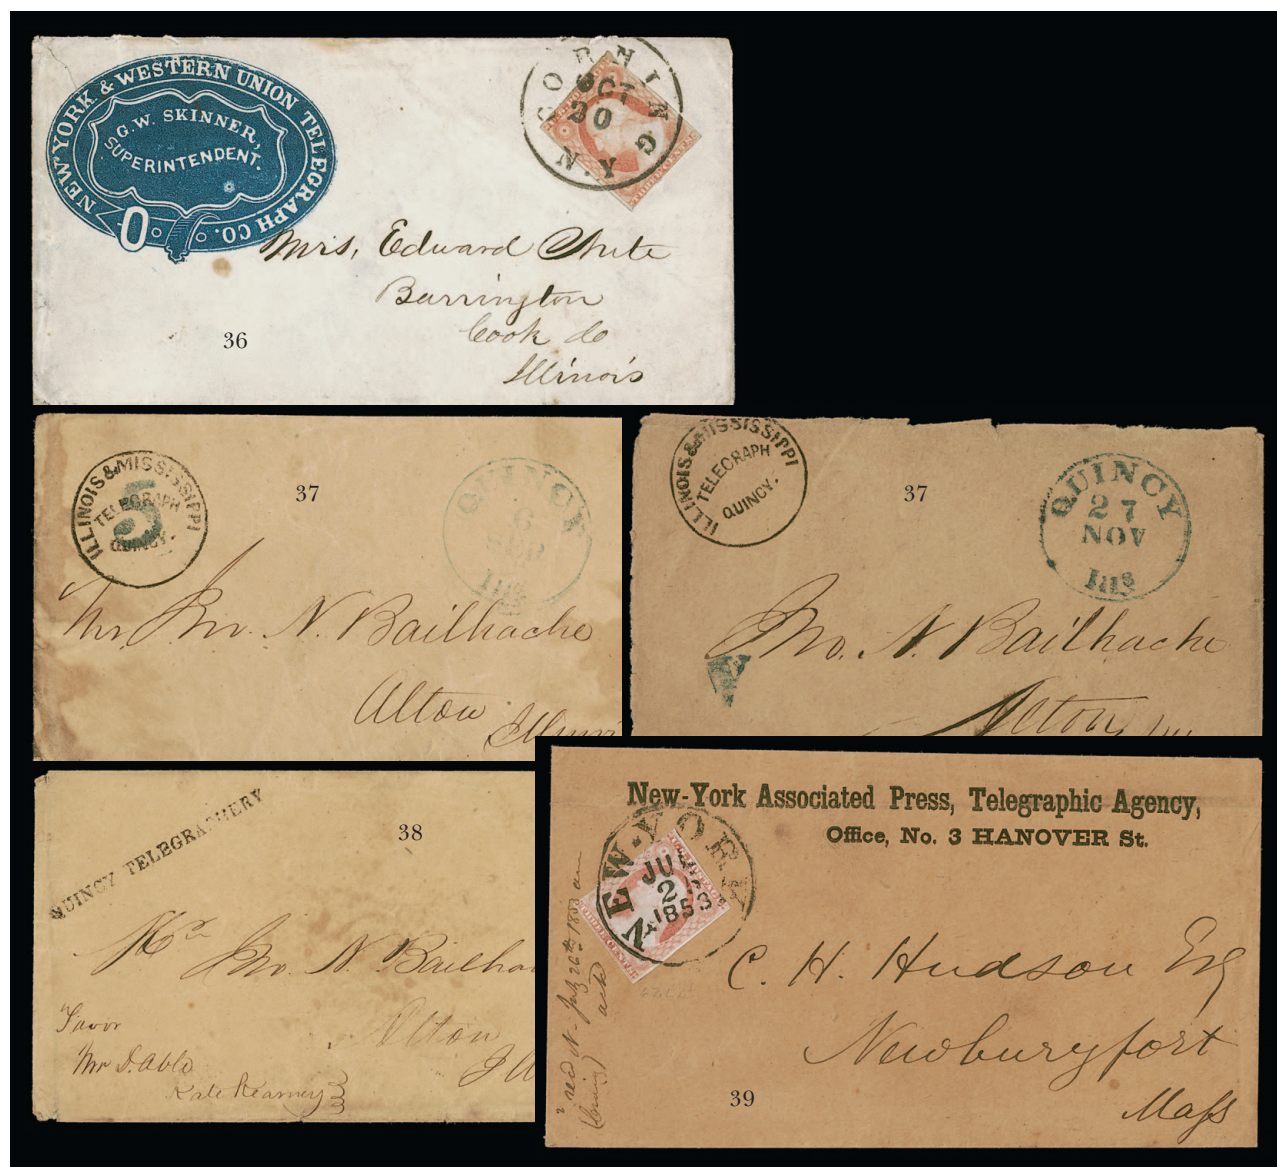 NEW YORK & WESTERN UNION TELEGRAPH CO.
G.W. SKINNER,
SUPERINTENDENT.
CORNING N.Y.
OCT
20
Mrs, Edward Shute
Barrington
Cook Co
Illinois
36
ILLINOIS & MISSISSIPPI
TELEGRAPH
QUINCY.
5
37
QUINCY
6
Ills
Mr Jno. N. Bailhache
Alton
ILLINOIS & MISSISSIPPI
TELEGRAPH
QUINCY.
37
QUINCY
27
NOV
Ills
Jno. N. Bailhache
Alton,
QUINCY TELEGRAPHERY
38
Mr Jno. N. Bailhac
Alton
Ill
Favor
Mr D. Able
Kate Kearney
New-York Associated Press, Telegraphic Agency,
Office, No. 3 HANOVER St.
NEW-YORK
JUL
2
1853
C. H. Hudson Esq
Newburyport
Mass
39